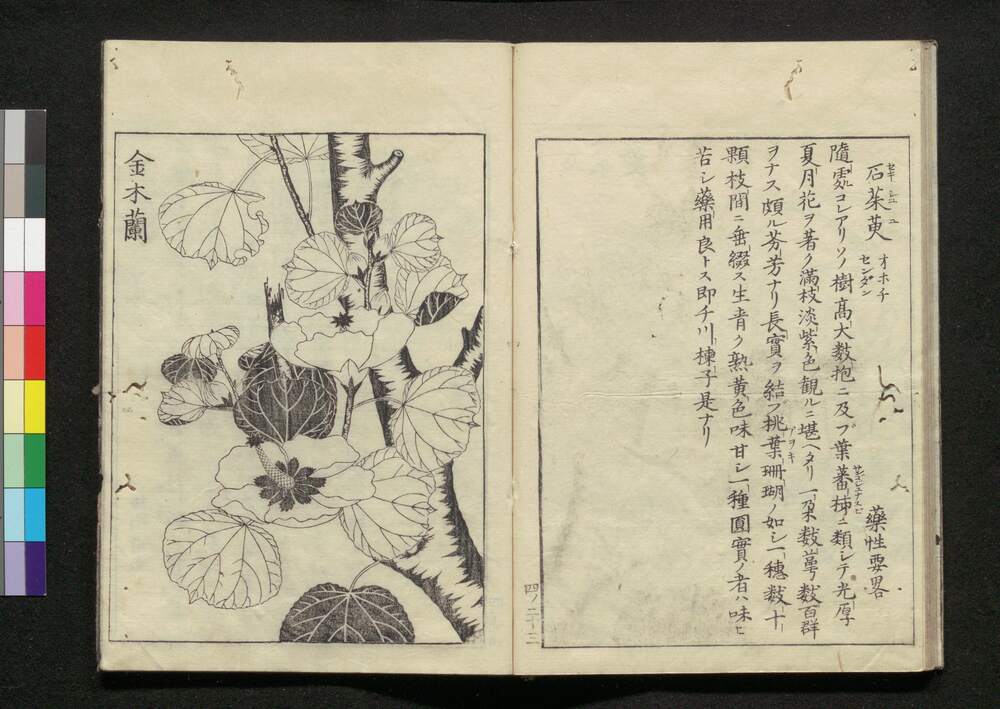 石茱萸 オホチ センダン 藥性要畧
隨處コレアリソノ樹髙大数抱ニ及ブ葉蕃柿ニ類シテ光厚
夏月花ヲ著ク滿枝淡紫色観ルニ堪ヘタリ一朶数萼数百群
ヲナス頗ル芳芳ナリ長實ヲ結ブ桃葉珊瑚ノ如シ一穗数十
顆枝間ニ垂綴ス生青ク熟黄色味甘シ一種圓實ノ者ハ味ヒ
苦シ藥用良トス即チ川楝子是ナリ
金木蘭